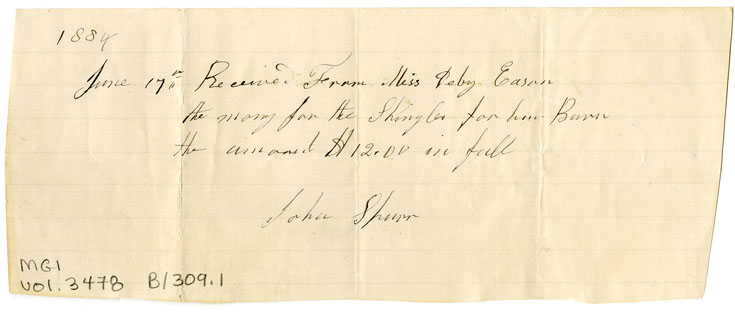 1884
June 17th Received From Miss Deby Eason
the mony for the Shingles for her Barn
the amount $12.00 in full
John Spurr
MG1
vol. 3478 B/309.1